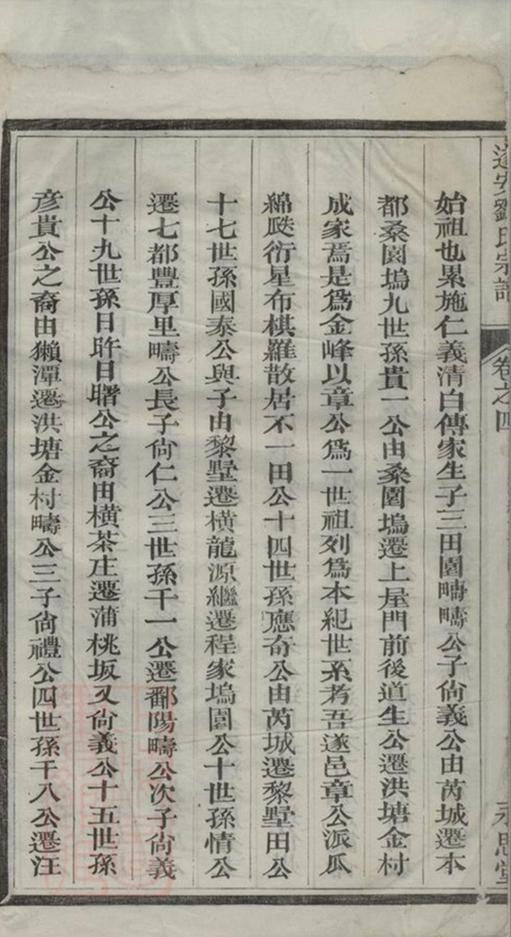 遂安劉氏宗譜
卷之四
永思堂
始祖也累施仁義清白傳家生子三田園疇疇公子尙義公由芮城遷本
都桑園塢九世孫貴一公由桑園塢遷上屋門前後道生公遷洪塘金村
成家焉是爲金峰以章公爲一世祖列爲本紀世系考吾遂邑章公派瓜
綿瓞衍星布棋羅散居不一田公十四世孫應奇公由芮城遷黎墅田公
十七世孫國泰公與子由黎墅遷橫龍源繼遷程家塢園公十世孫情公
遷七都豐厚里疇公長子尙仁公三世孫千一公遷鄱陽疇公次子尙義
公十九世孫日旿日䎖公之裔由橫茶庄遷蒲桃坂又尙義公十五世孫
彦貴公之裔由獺潭遷洪塘金村疇公三子尙禮公四世孫千八公遷汪